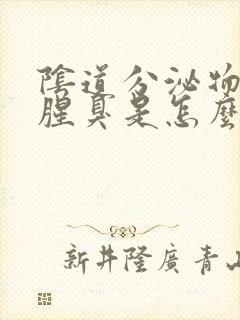 陰道分泌物
腥臭是怎麼
新井隆廣青山